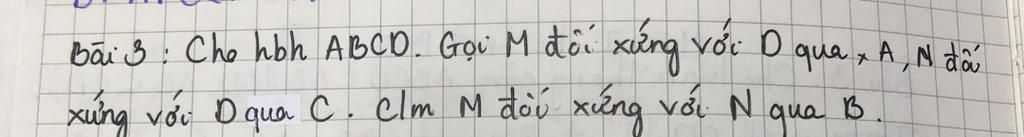 Bài 3 : Cho hbh ABCD. Gọi M đối xứng với D qua A, N đối
xứng với D qua C. C/m M đối xứng với N qua B.